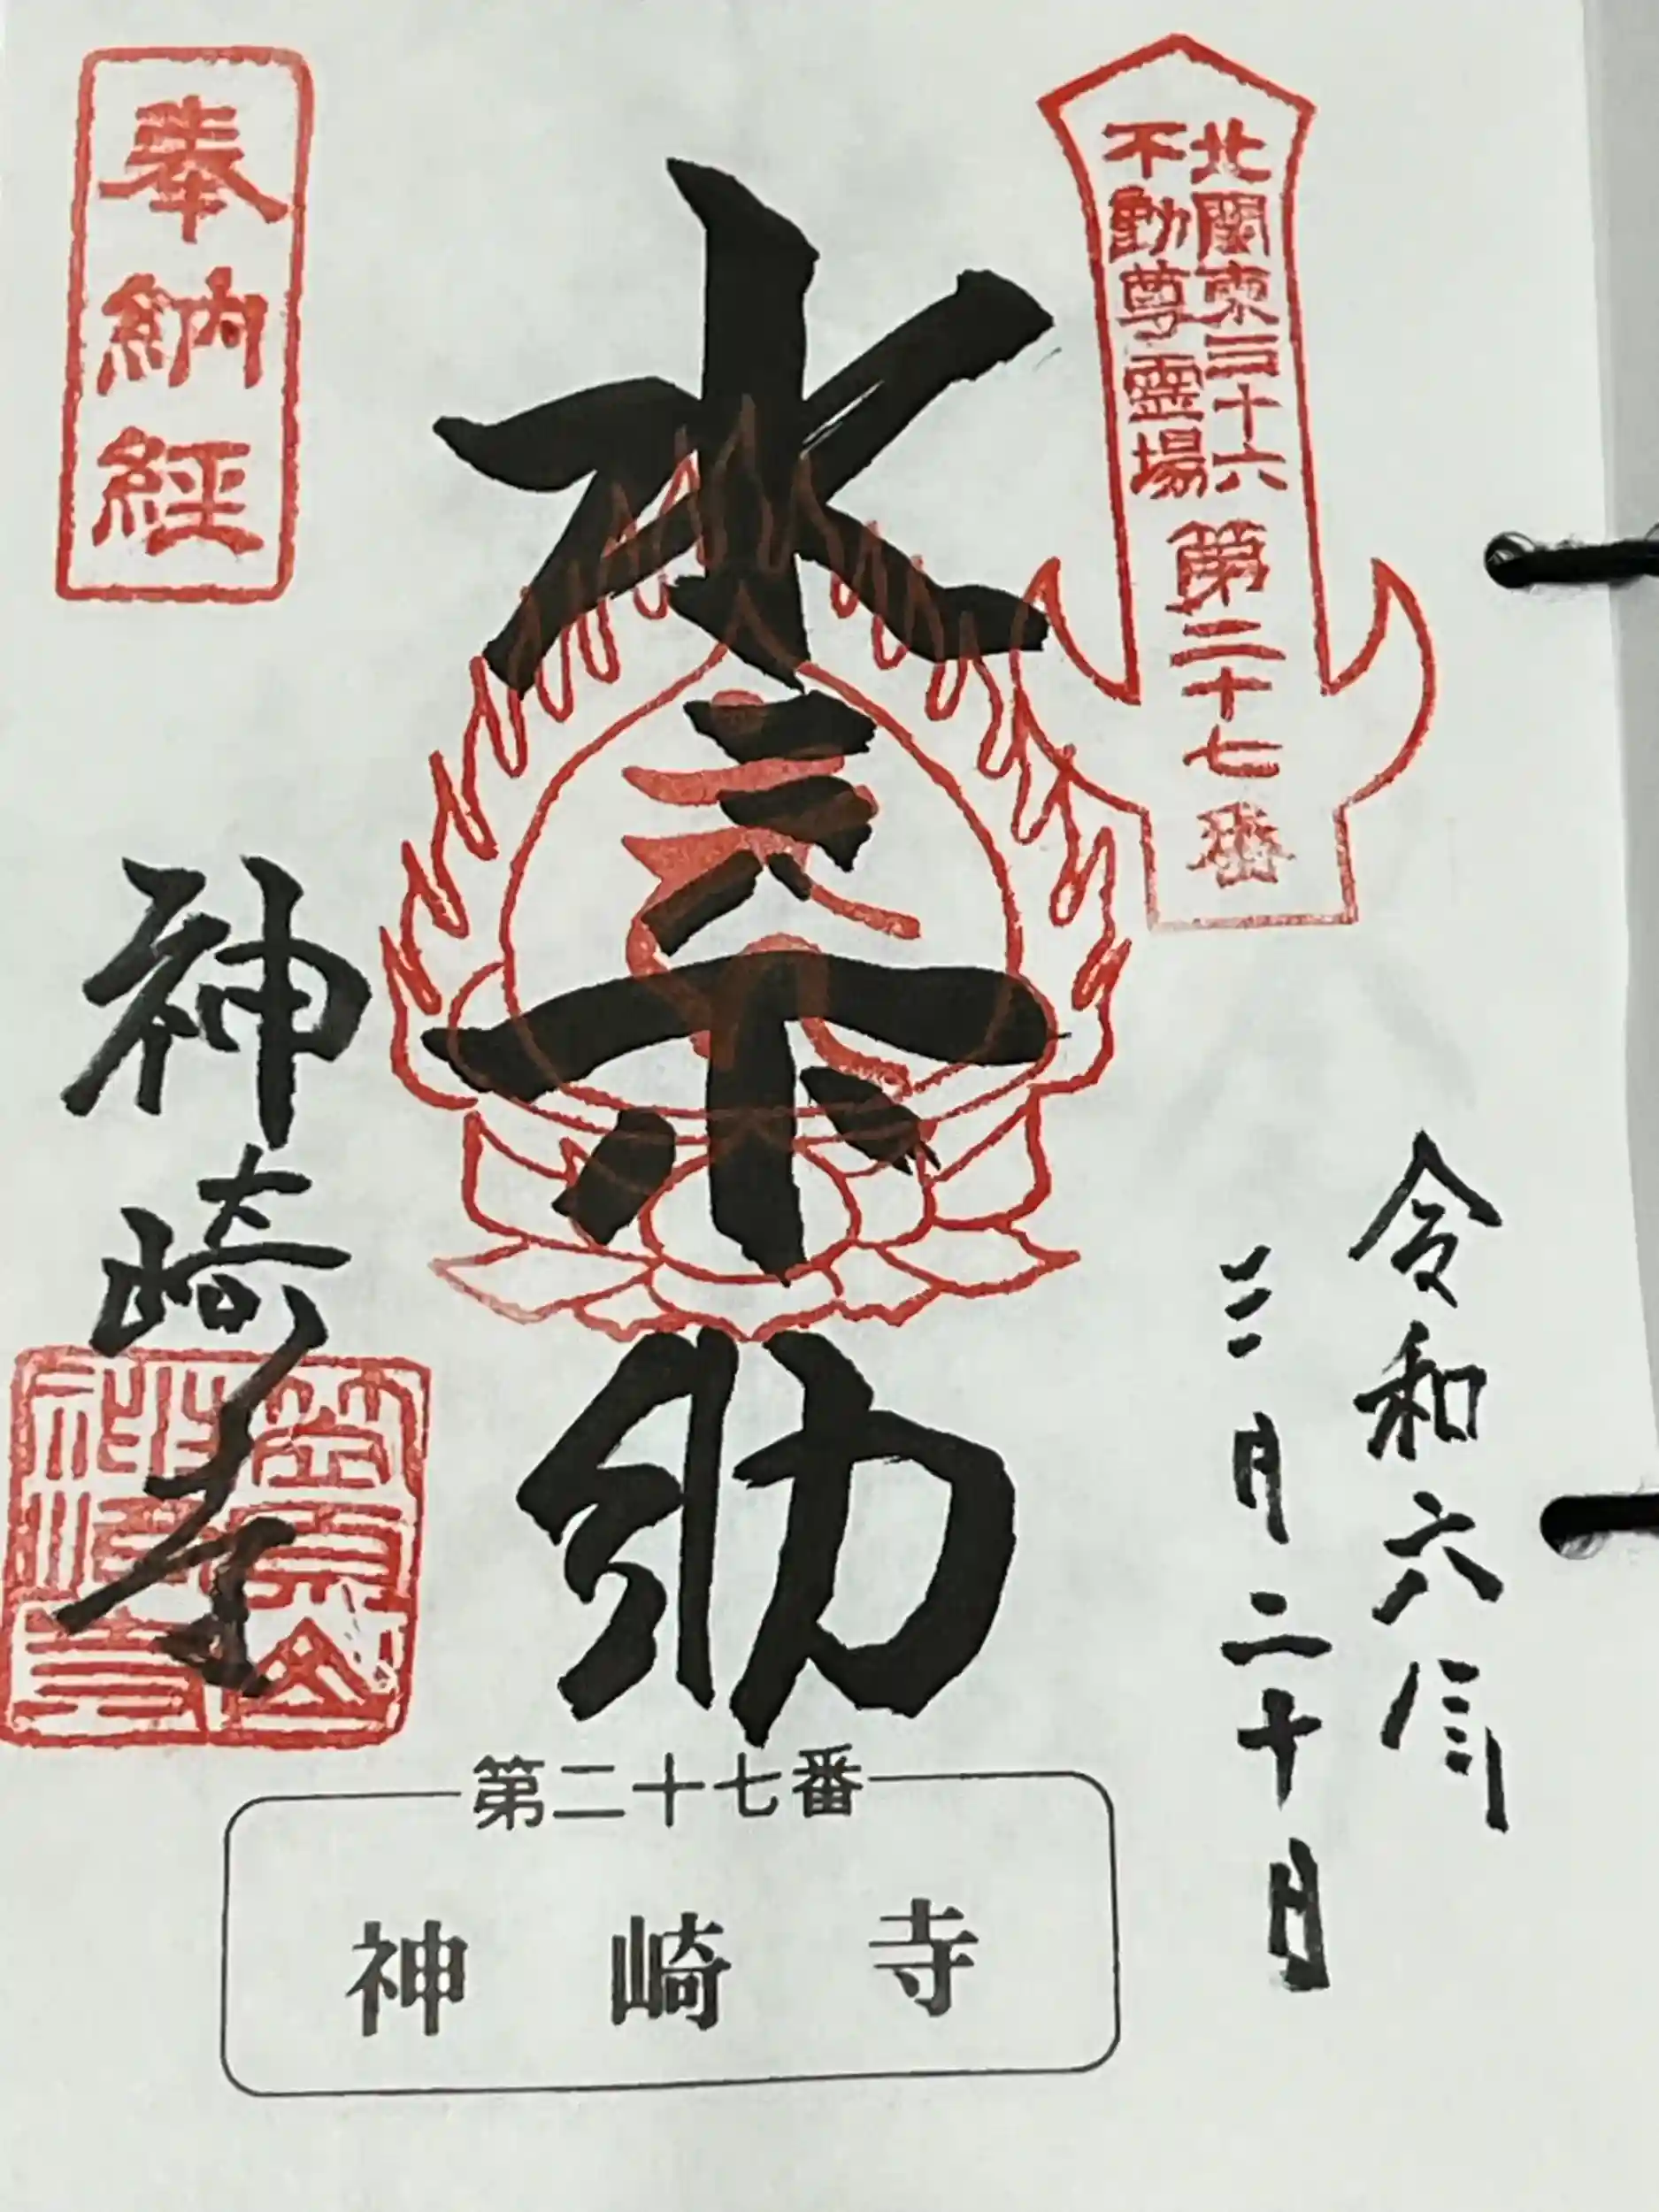 北関東三十六
不動尊霊場
第二十七番
令和六年
三月二十日
水
奉納経
神崎寺
笠原山
神崎寺
第二十七番
神崎寺